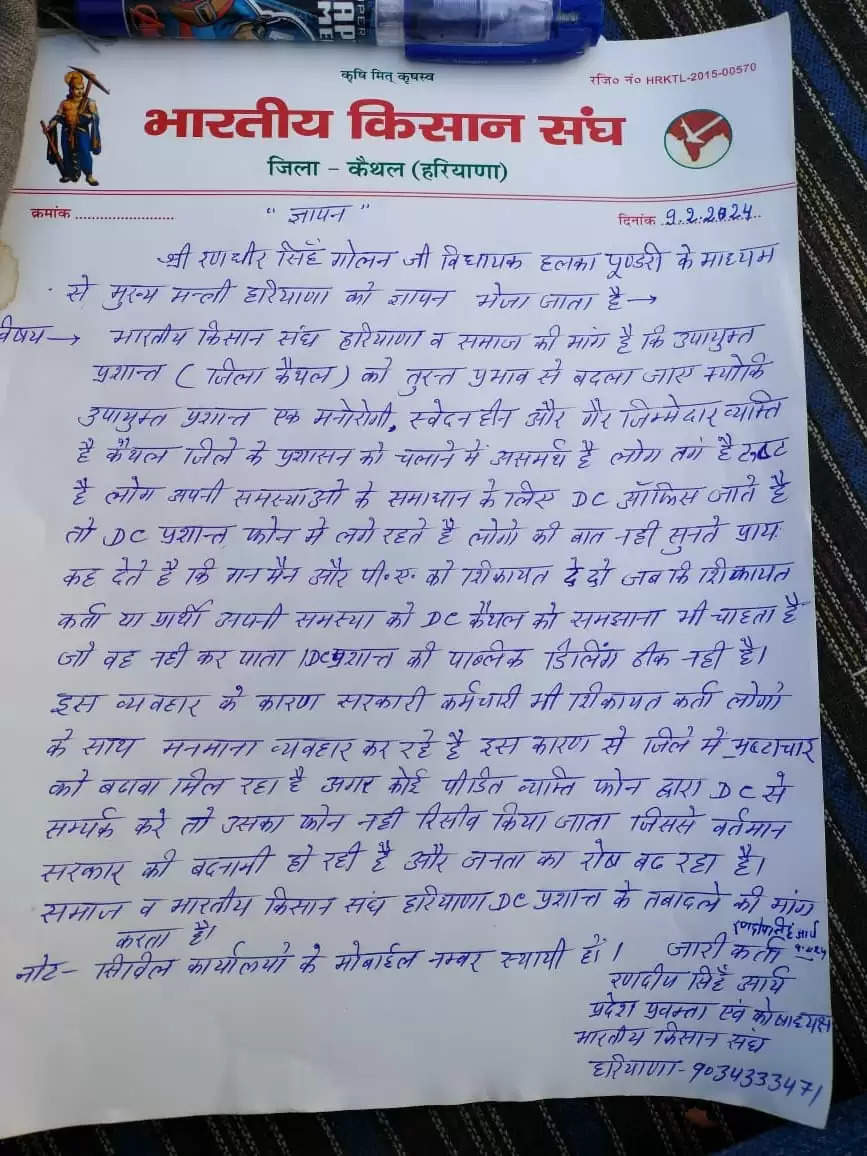 कृषि मित् कृषस्व
रजि० नं० HRKTL-2015-00570
भारतीय किसान संघ
जिला - कैथल (हरियाणा)
क्रमांक ........................
" ज्ञापन "
दिनांक 9.2.2024
श्री रणधीर सिहँ गोलन जी विधायक हलका पूण्डरी के माध्यम
से मुख्य मन्त्री हरियाणा को ज्ञापन भेजा जाता है →
विषय → भारतीय किसान संघ हरियाणा व समाज की मांग है कि उपायुक्त
प्रशान्त ( जिला कैथल ) को तुरन्त प्रभाव से बदला जाए क्योकि
उपायुक्त प्रशान्त एक मनोरोगी, स्वेदन हीन और गैर जिम्मेदार व्यक्ति
है कैथल जिले के प्रशासन को चलाने में असमर्थ है लोग तगं है
है लोग अपनी समस्याओ के समाधान के लिए DC ऑफिस जाते है
तो DC प्रशान्त फोन मे लगे रहते है लोगो की बात नही सुनते प्राय:
कह देते है कि गन मैन और पी.ए. को शिकायत दे दो जब कि शिकायत
कर्ता या प्रार्थी अपनी समस्या को DC कैथल को समझाना भी चाहता है
जो वह नही कर पाता । DC प्रशान्त की पाब्लिक डिलिंग ठीक नही है।
इस व्यवहार के कारण सरकारी कर्मचारी भी शिकायत कर्ता लोगो
के साथ मनमाना व्यवहार कर रहे है इस कारण से जिले में भ्रष्टाचार
को बढावा मिल रहा है अगर कोई पीडित व्यक्ति फोन द्वारा DC से
सम्पर्क करे तो उसका फोन नही रिसीव किया जाता जिससे वर्तमान
सरकार की बदनामी हो रही है और जनता का रोष बढ रहा है।
समाज व भारतीय किसान संघ हरियाणा DC प्रशान्त के तबादले की मांग
करता है।
नोट - सिविल कार्यालयो के मोबाईल नम्बर स्थायी हों ।
जारी कर्ता
रणदीप सिहँ आर्य
प्रदेश प्रवक्ता एवं कोषाध्यक्ष
भारतीय किसान संघ
हरियाणा - 9034333471